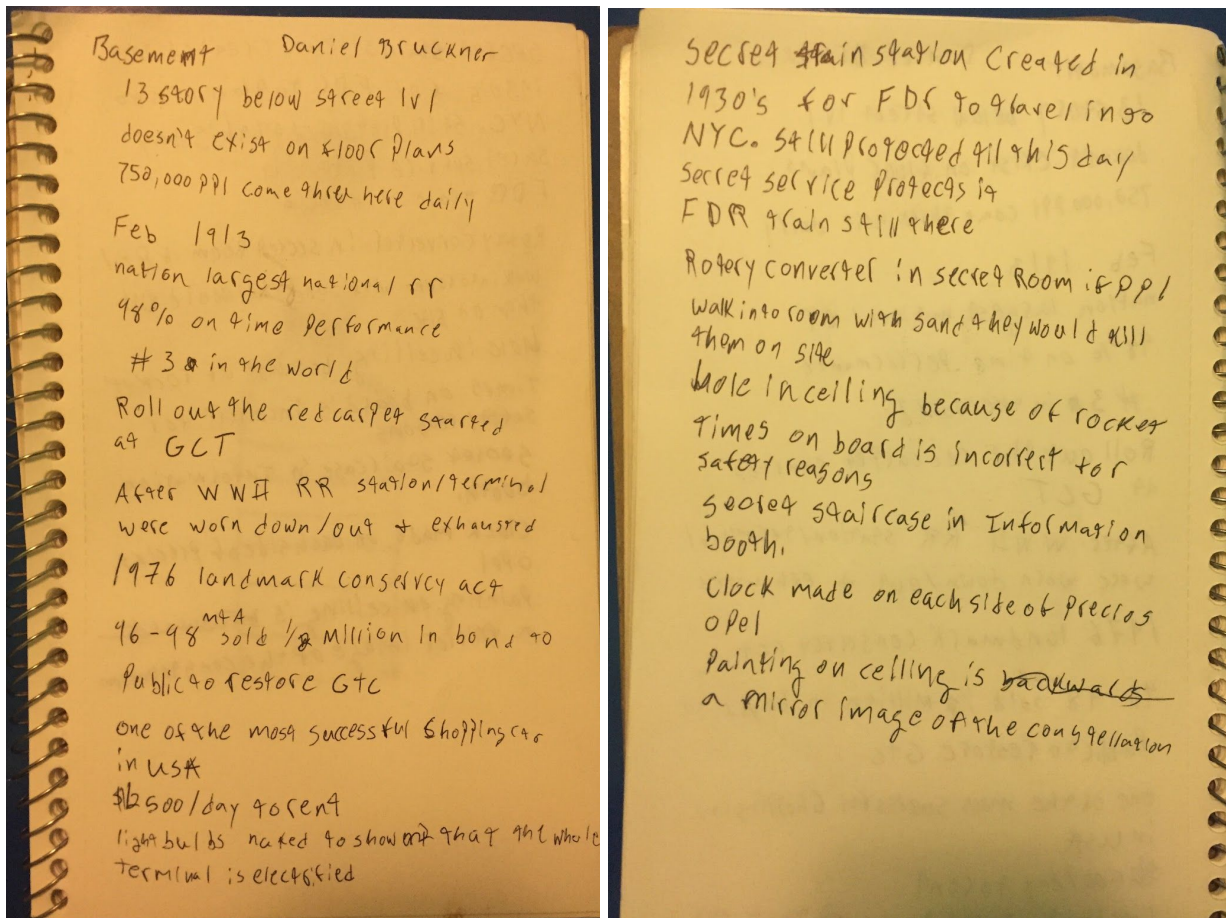 Basement Daniel Bruckner
13 story below street lvl
doesn't exist on floor plans
750,000 ppl come threw here daily
Feb 1913
nation largest national rr
98% on time performance
#3 in the world
Roll out the red carpet started
at GCT
After WWII RR station/terminal
were worn down/out + exhausted
1976 landmark conservcy act
MTA
96-98 sold 1/2 million in bond to
Public to restore GTC
one of the most successful shopping ctr
in USA
500/day to rent
light bulbs naked to show that the whole
terminal is electrified
secret train station created in
1930's for FDR to travel into
NYC. Still Protected till this day
secret service protects it
FDR train still there
Rotery converter in secret Room if ppl
walk into room with sand they would kill
them on site
Hole in celling because of rocket
times on board is incorrect for
safety reasons
secret staircase in Information
booth.
Clock made on each side of precios
opel
Painting on celling is backwards
a mirror image of the constellation